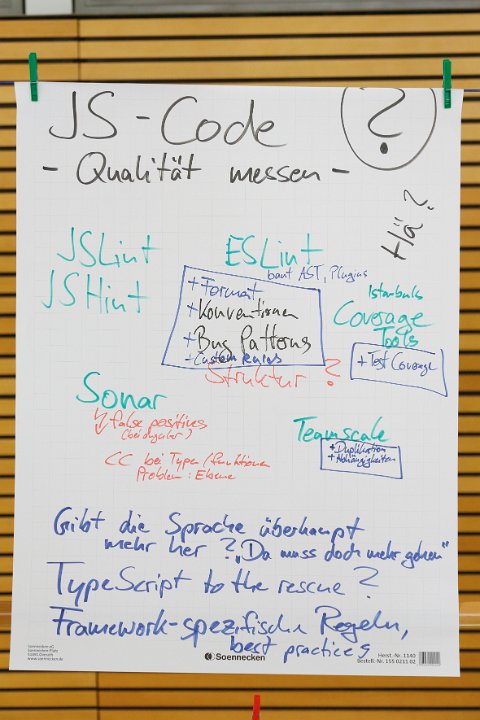 JS-Code ?
- Qualität messen -
Hä?
JSLint
JSHint
ESLint
baut AST, Plugins
+ Format
+ Konventionen
+ Bug Patterns
+ Custom
Struktur ?
Istanbuls
Coverage
Tools
+ Test Coverage
Sonar
false positives
(bei angular)
CC bei Typen/funktionen
Problem: Ebene
Teamscale
+ Duplikation
+ Abhängigkeiten
Gibt die Sprache überhaupt
mehr her? "Da muss doch mehr gehen"
TypeScript to the rescue?
Framework-spezifische Regeln,
best practices
Soennecken eG
Soennecken-Platz
51491 Overath
www.soennecken.de
Soennecken
Herst.-Nr. 1140
Bestell-Nr. 155 0211 02